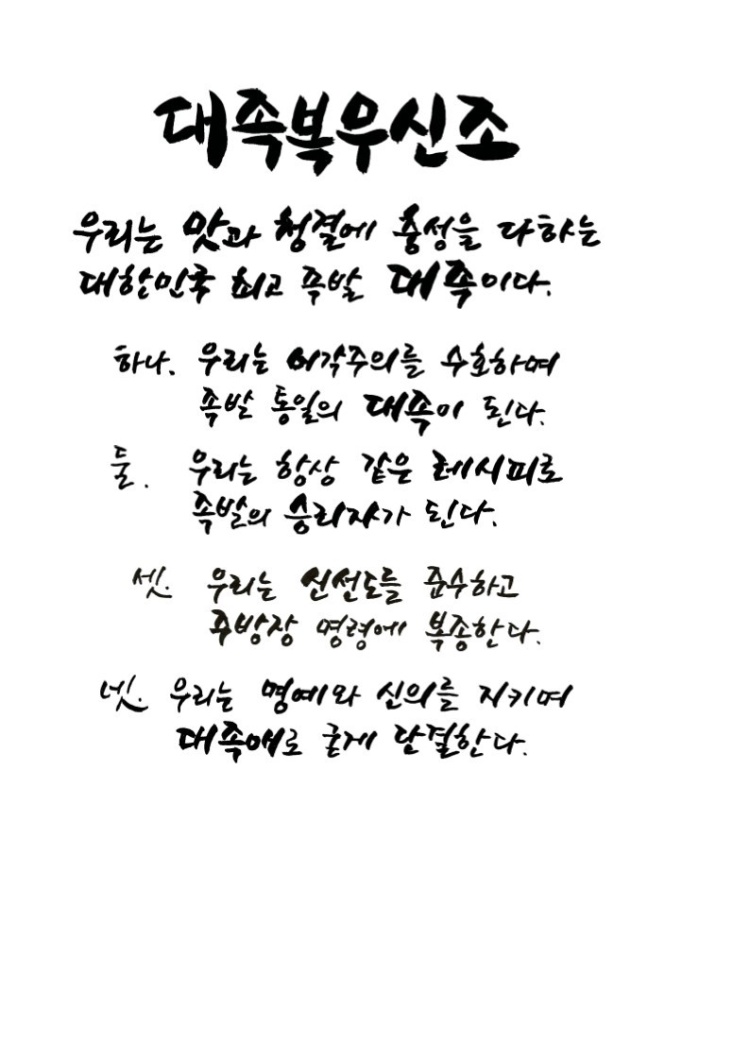 대족복우신조
우리는 맛과 청결에 충성을 다하는
대한민국 최고 족발 대족이다.
하나. 우리는 미각주의를 수호하며
족발 통일의 대족이 된다.
둘. 우리는 항상 같은 레시피로
족발의 승리자가 된다.
셋. 우리는 신선도를 준수하고
주방장 명령에 복종한다.
넷. 우리는 명예와 신의를 지키며
대족애로 굳게 단결한다.